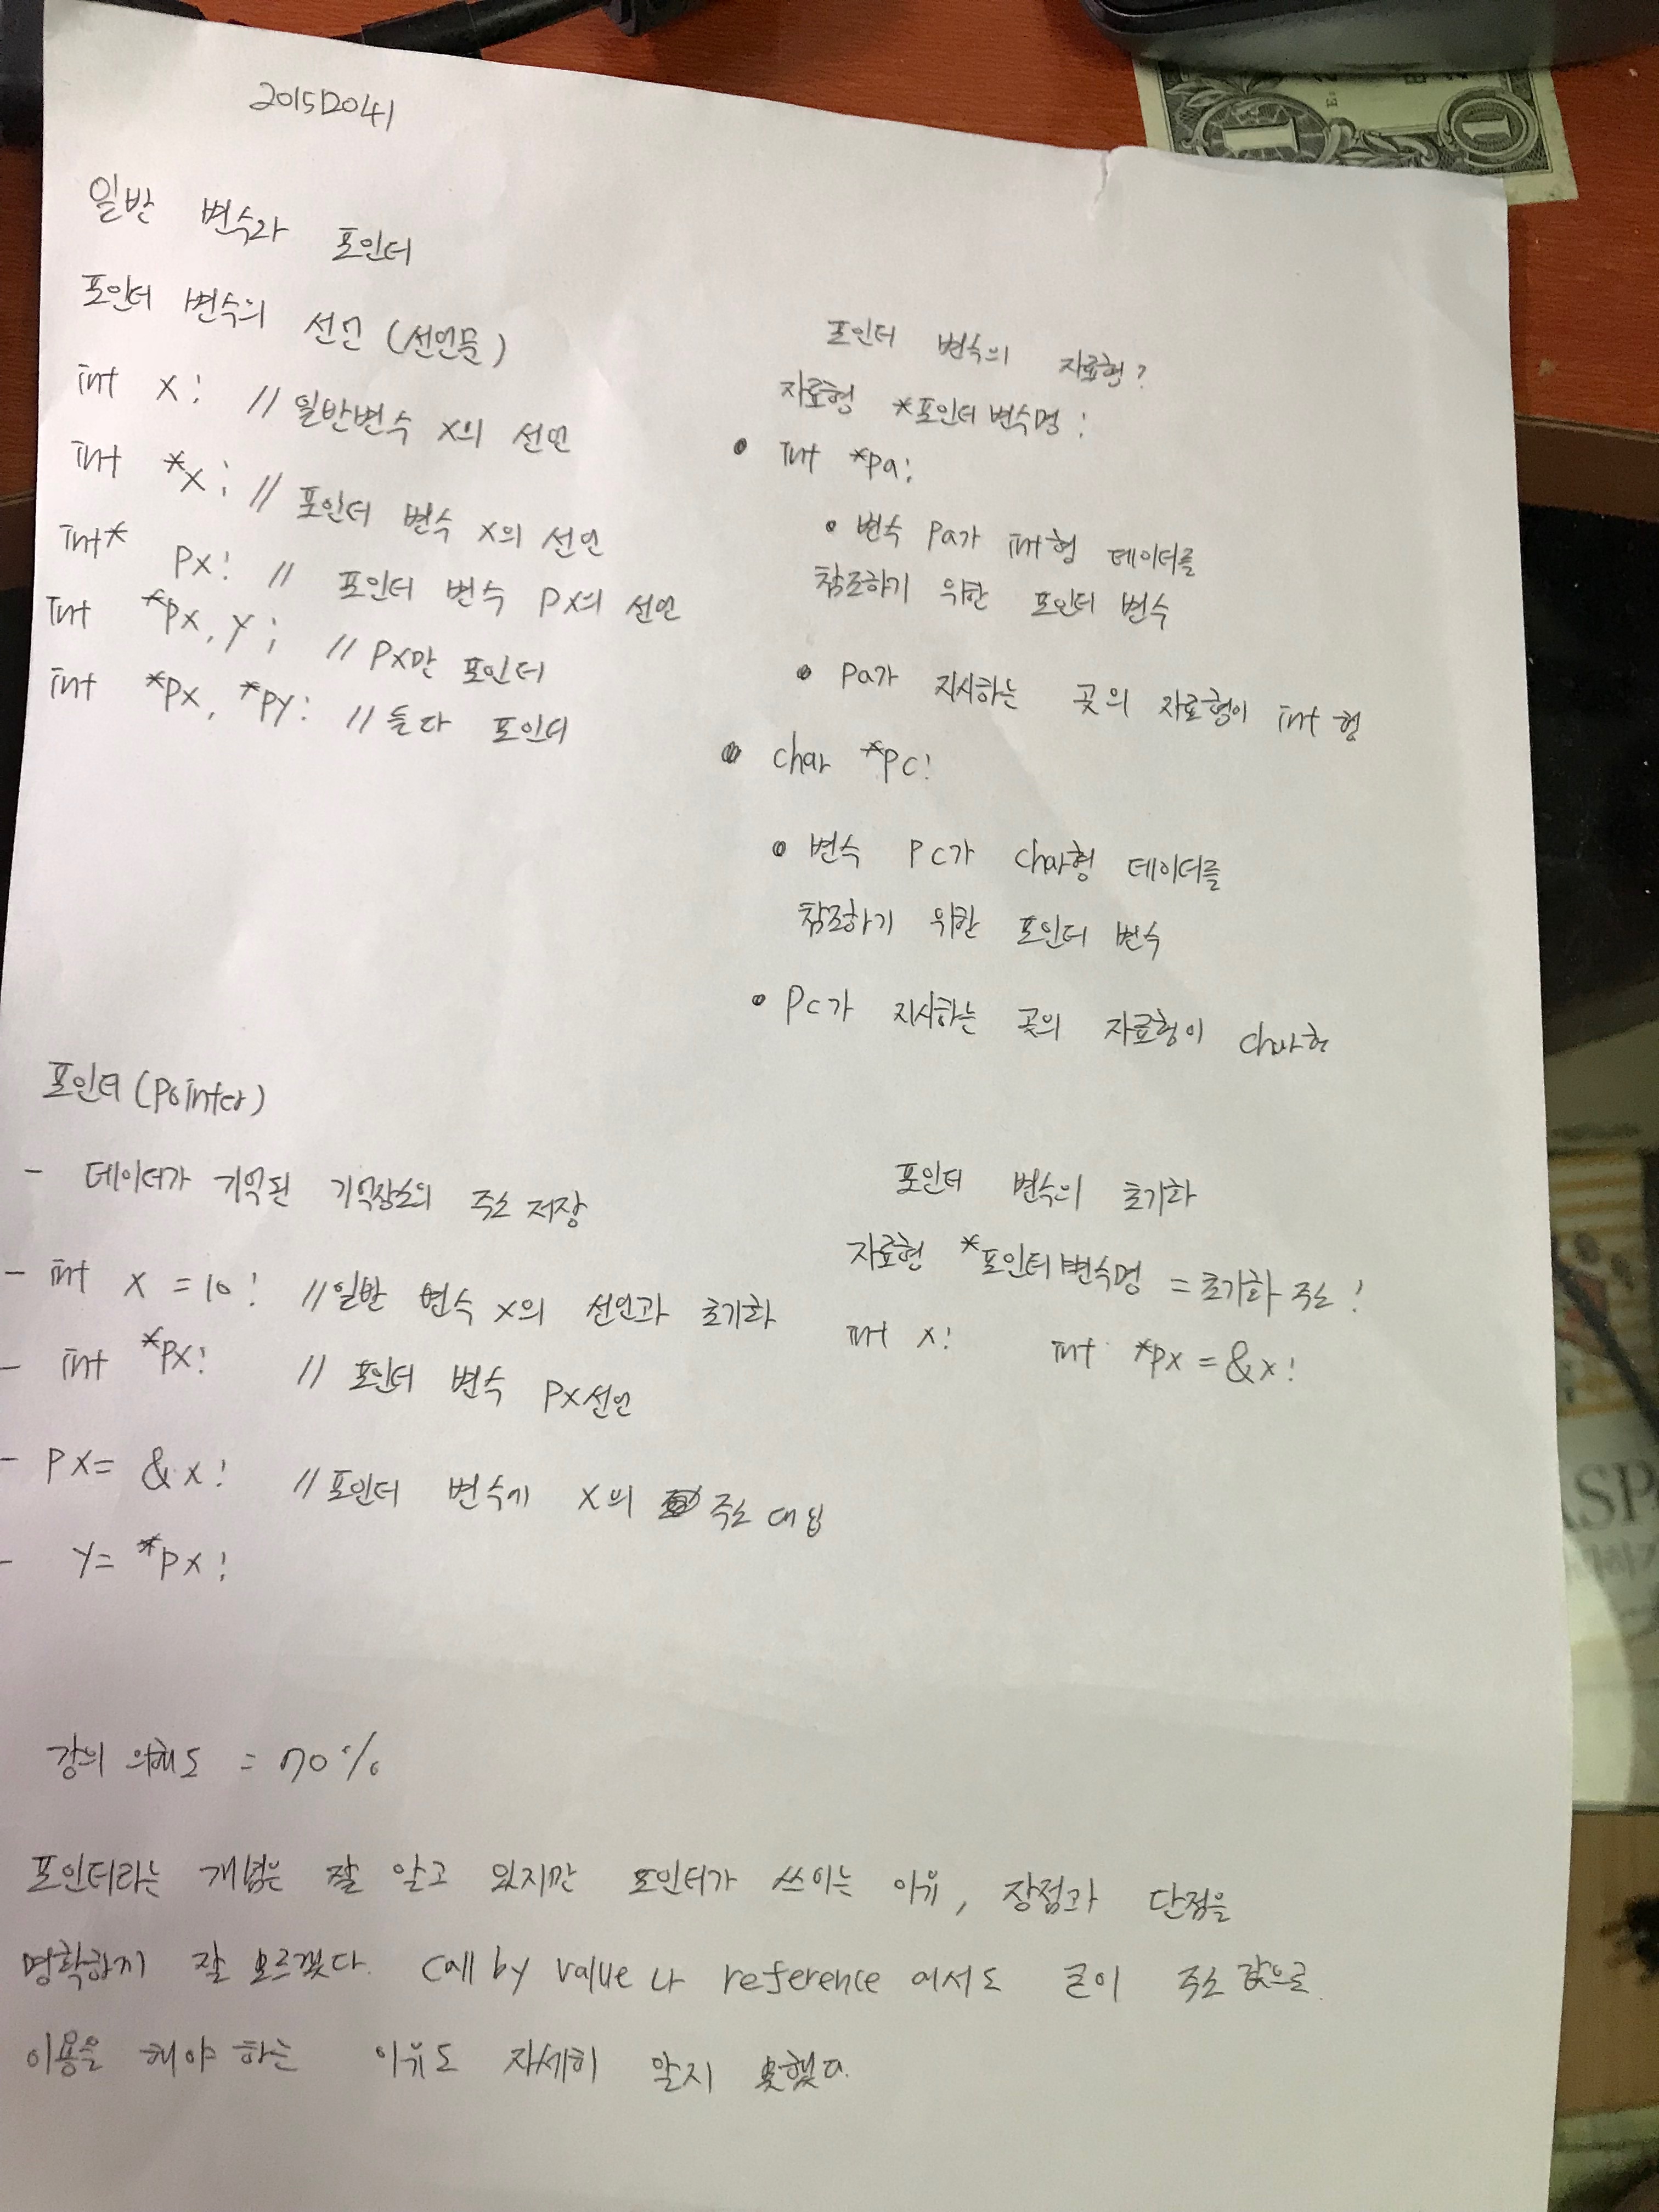 201512041
일반 변수와 포인터
포인터 변수의 선언 (선언문)
int x; // 일반변수 x의 선언
int *x; // 포인터 변수 x의 선언
int* px; // 포인터 변수 px의 선언
int *px, y; // px만 포인터
int *px, *py; // 둘다 포인터
포인터 변수의 자료형?
자료형 *포인터변수명;
• int *pa;
• 변수 pa가 int형 데이터를
참조하기 위한 포인터 변수
• pa가 지시하는 곳의 자료형이 int형
• char *pc;
• 변수 pc가 char형 데이터를
참조하기 위한 포인터 변수
• pc가 지시하는 곳의 자료형이 char형
포인터 (pointer)
- 데이터가 기억된 기억장소의 주소 저장
- int x = 10; // 일반 변수 x의 선언과 초기화
- int *px; // 포인터 변수 px선언
- px= &x; // 포인터 변수에 x의 주소 대입
- y= *px;
포인터 변수의 초기화
자료형 *포인터변수명 = 초기화 주소;
int x; int *px = &x;
강의 이해도 = 70%
포인터라는 개념은 잘 알고 있지만 포인터가 쓰이는 이유, 장점과 단점을
명확하게 잘 모르겠다. call by value나 reference에서도 굳이 주소 값으로
이용을 해야 하는 이유도 자세히 알지 못했다.
ASP